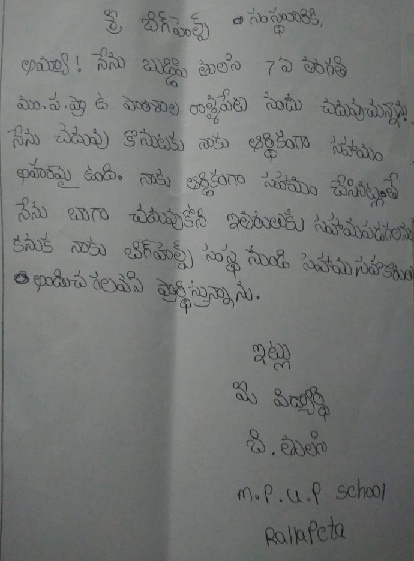 శ్రీ బిగ్‌హెల్ప్ సంస్థవారికి,
అయ్యా! నేను బుడ్డి తులసి 7వ తరగతి
మం.ప.ప్రా.ఉ పాఠశాల రాళ్ళపేట నందు చదువుచున్నాను.
నేను చదువు కొనుటకు నాకు ఆర్థికంగా సహాయం
అవసరమై ఉంది. నాకు ఆర్థికంగా సహాయం చేసినట్లైతే
నేను బాగా చదువుకొని ఇతరులకు సహాయపడగలను
కనుక నాకు బిగ్‌హెల్ప్ సంస్థ నుండి సహాయ సహకారం
అందించ గలవని ప్రార్థిస్తున్నాను.
ఇట్లు
మీ విద్యార్థి
బి. తులసి
M.P.U.P School
Rallapeta